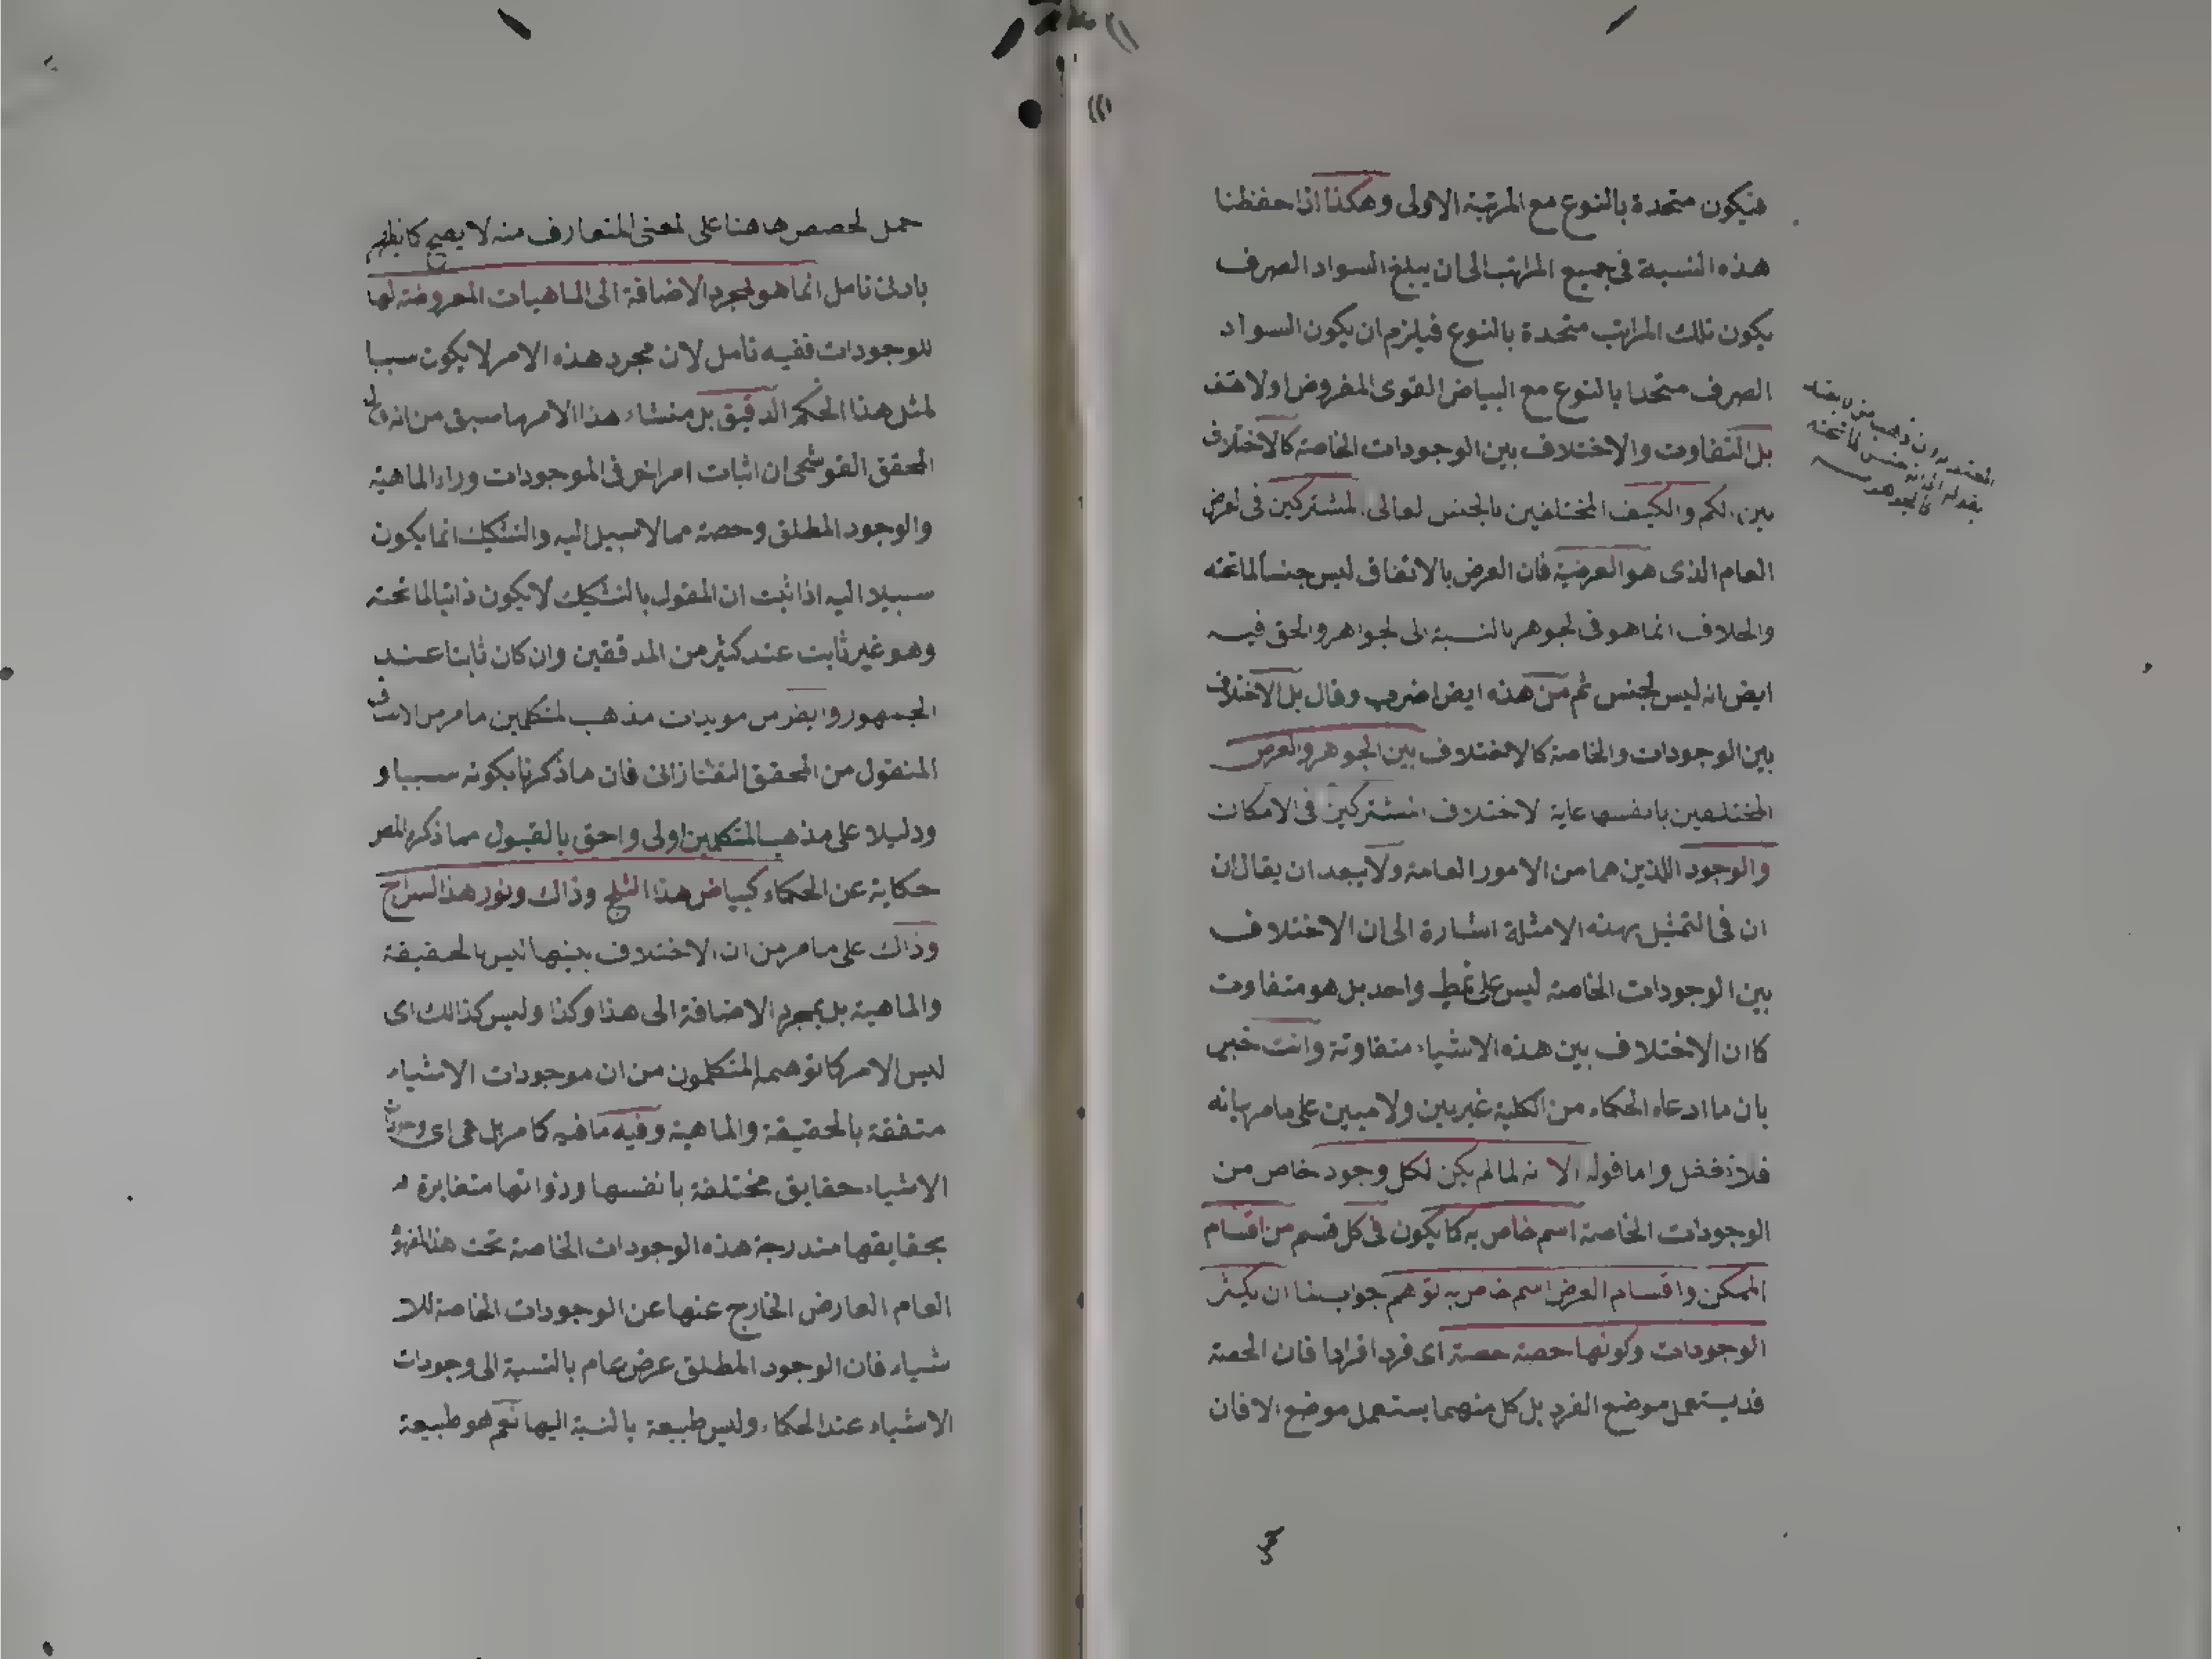 فيكون متحدة بالنوع مع المرتبة الاولى وهكذا اذا حفظنا
هذه النسبة فى جميع المراتب الى ان يبلغ السواد الصرف
يكون تلك المراتب متحدة بالنوع فيلزم ان يكون السواد
الصرف متحدا بالنوع مع البياض القوى المفروض اولا هف
بل التفاوت والاختلاف بين الوجودات الخاصة كالاختلاف
بين الكم والكيف المختلفين بالجنس لعالى المشتركين فى لعرض
العام الذى هو العرضية فان العرض بالاتفاق ليس جنسا لما تحته
والخلاف انما هو فى لجوهر بالنسبة الى لجواهر والحق فيه
ايض انه ليس لجنس ثم من هذه ايضا ضرب وقال بل الاختلاف
بين الوجودات والخاصة كالاختلاف بين الجوهر والعرض
المختلفين بانفسها غاية لاختلاف المشتركين فى الامكان
والوجود اللذين هما من الامور العامة ولا يبعد ان يقال ان
ان فى التمثيل بهذه الامثلة اشارة الى ان الاختلاف
بين الوجودات الخاصة ليس على نمط واحد بل هو متفاوت
كما ان الاختلاف بين هذه الاشياء متفاوتة وانت خبير
بان ما ادعاه الحكماء من الكلية غير بين ولا مبين على ما مر بيانه
فلا تغفل واما قوله الا نه لما لم يكن لكل وجود خاص من
الوجودات الخاصة اسم خاص به كما يكون فى كل قسم من اقسام
الممكن واقسام العرض اسم خاص به توهم جواب ان يكثر
الوجودات وكونها حصة حصة اى فردا فردا فان الحصة
قد يستعمل موضع الفرد بل كل منهما يستعمل موضع الا فان
حمل لحصص هاهنا على لمعنى المتعارف منه لا يصح كما يظهر
بادنى تامل انما هو لمجرد الاضافة الى الماهيات المعروضة لها
للوجودات ففيه تامل لان مجرد هذه الامر لا يكون سببا
لمثل هذا الحكم الدقيق بل منشاء هذا الامر ما سبق من انه قال
المحقق القوشجى ان اثبات امر اخر فى الموجودات وراء الماهية
والوجود المطلق وحصة مما لا سبيل اليه والتشكيك انما يكون
سبيلا اليه اذا ثبت ان المقول بالتشكيك لا يكون ذاتيا لما تحته
وهو غير ثابت عند كثير من المدققين وان كان ثابتا عند
الجمهور وايضر من مويدات مذهب لمتكلمين ما مر من
المنقول من المحقق التفتازانى فان ما ذكرنا بكونه سببا و
ودليلا على مذهب المتكلمين اولى واحق بالقبول مما ذكره المصر
حكاية عن الحكماء كبياض هذا الثلج وذاك ونور هذا السراج
وذاك على ما مر من ان الاختلاف بينها ليس بالحقيقة
والماهية بل بمجرد الاضافة الى هذا وكذا وليس كذالك اى
ليس الامر كما توهمه المتكلمون من ان موجودات الاشياء
متفقة بالحقيقة والماهية وفيه ما فيه كما مر بل هى اى وجودات
الاشياء حقايق مختلفة بانفسها وذواتها متغايرة
بحقايقها مندرجة هذه الوجودات الخاصة تحت هذا المفهوم
العام العارض الخارج عنها عن الوجودات الخاصة للا
شياء فان الوجود المطلق عرض عام بالنسبة الى وجودات
الاشياء عند الحكماء وليس طبيعة بالنسبة اليها نعم هو طبيعة